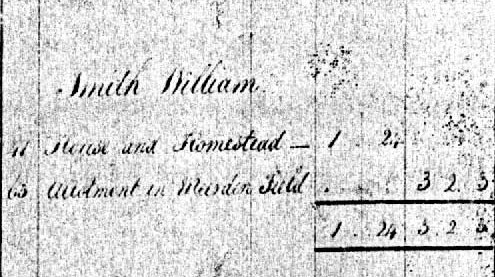 Smith William
41 House and Homestead — 1 . 24
63 Allotment in Marden Field . . 3 2 3
1 . 24 3 2 3